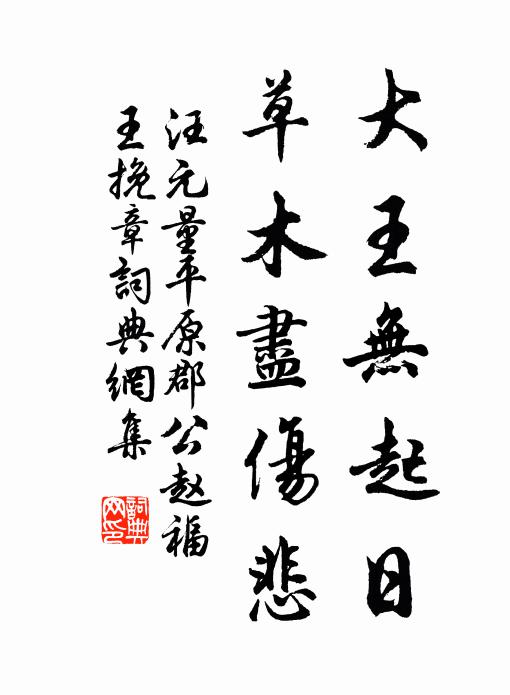 大王無起日
草木盡傷悲
汪元量平原郡公赵福
王挽章詞典網集
詞典網印